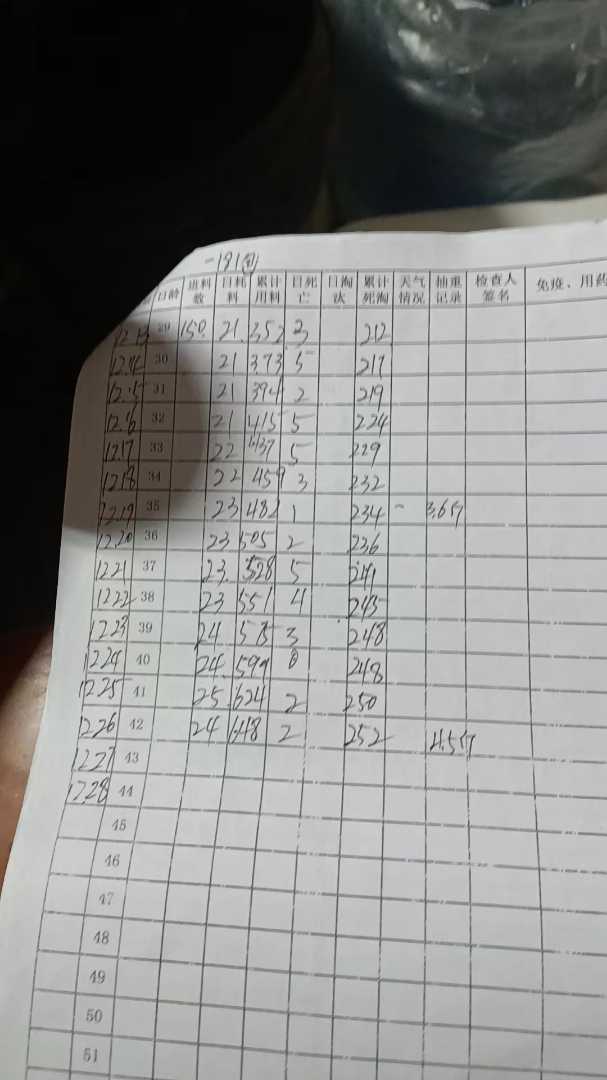 -181包
日龄 进料数 日耗料 累计用料 日死亡 日淘汰 累计死淘 天气情况 抽重记录 检查人签名 免疫、用药
12.13 29 150. 21. 352 3 212
12.14 30 21 373 5 217
12.15 31 21 394 2 219
12.16 32 21 415 5 224
12.17 33 22 437 5 229
12.18 34 22 459 3 232
12.19 35 23 482 1 234 -
12.20 36 23 505 2 236
12.21 37 23. 528 5 241
12.22 38 23 551 4 245
12.23 39 24 575 3 248
12.24 40 24. 599 0 248
12.25 41 25. 624 2 250
12.26 42 24 648 2 252
12.27 43
12.28 44
45
46
47
48
49
50
51